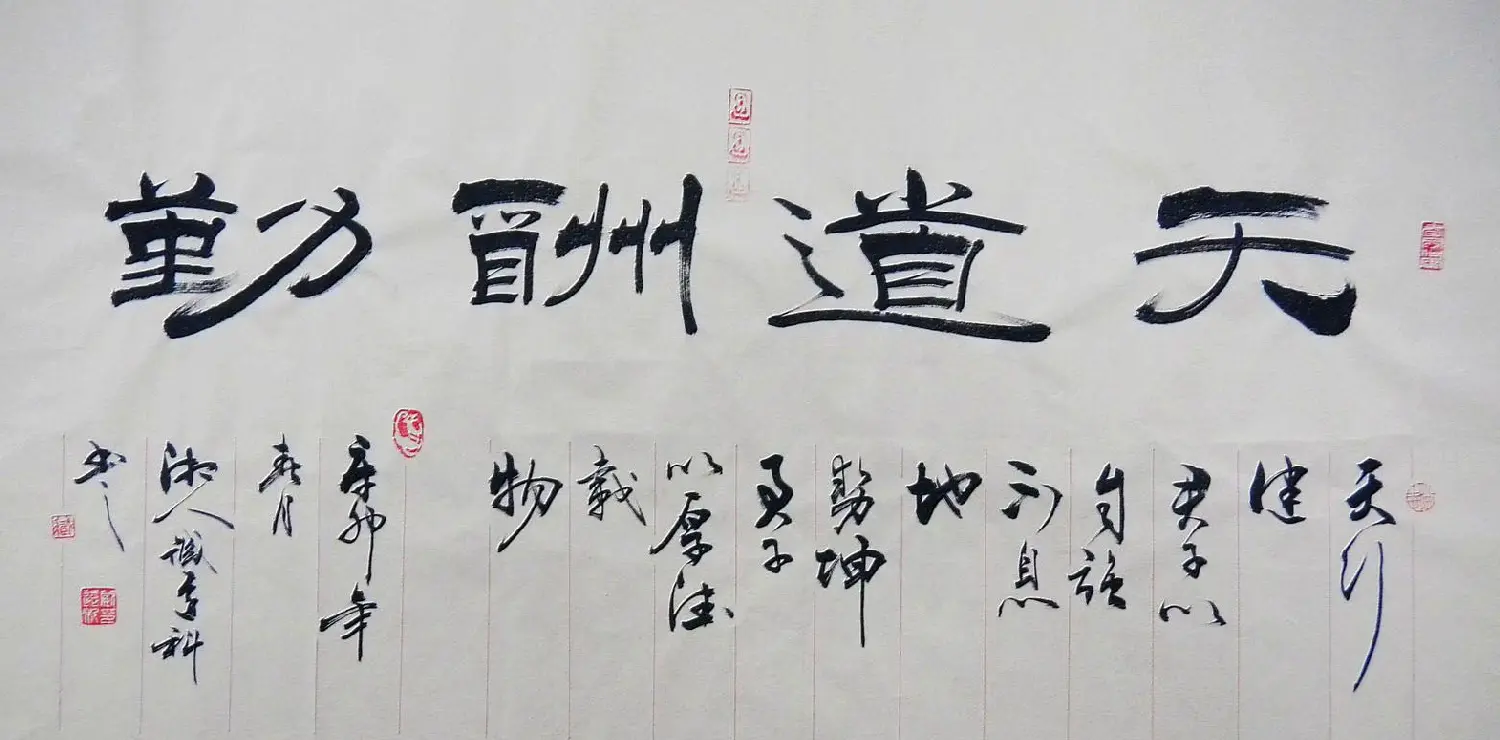 天道酬勤
天行
健
君子以
自强
不息
地
势坤
君子
以厚德
载
物
辛卯年
春月
湘人
书之